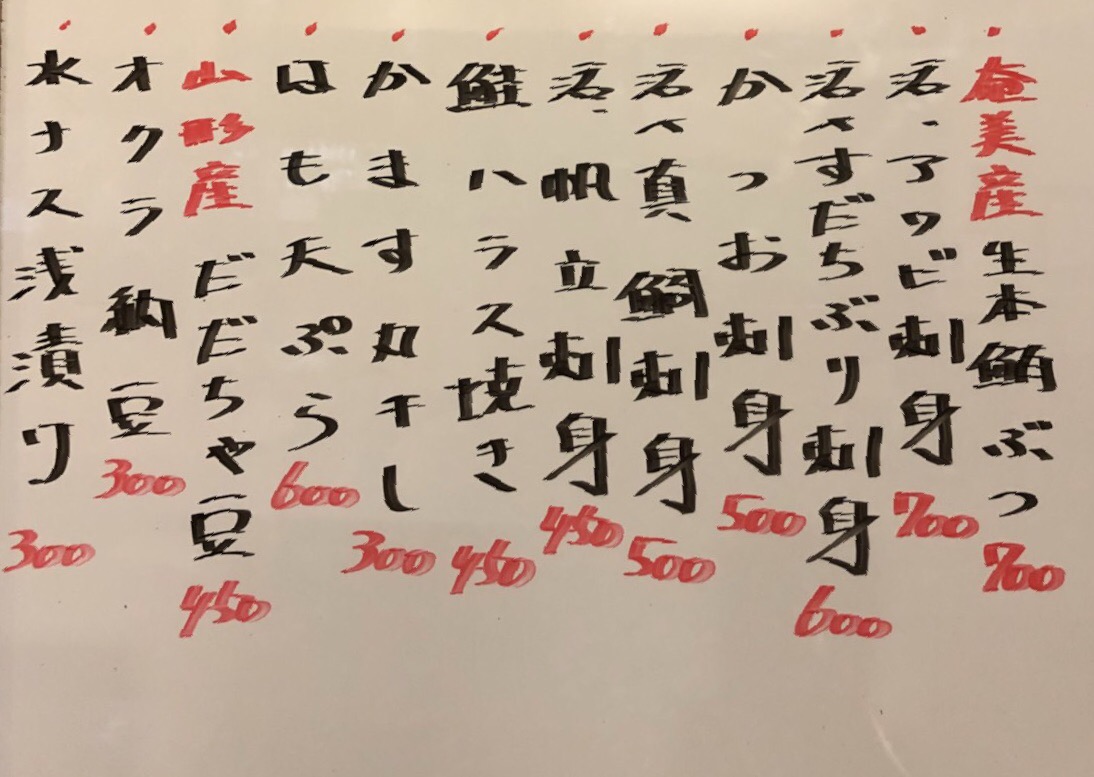 奄美産生本鮪ぶつ 700
活、アワビ刺身 700
活〆すだちぶり刺身 600
かつお刺身 500
活〆真鯛刺身 500
活、帆立刺身 450
鮭ハラス焼き 450
かます丸干し 300
はも天ぷら 600
山形産だだちゃ豆 450
オクラ納豆 300
水ナス浅漬り 300